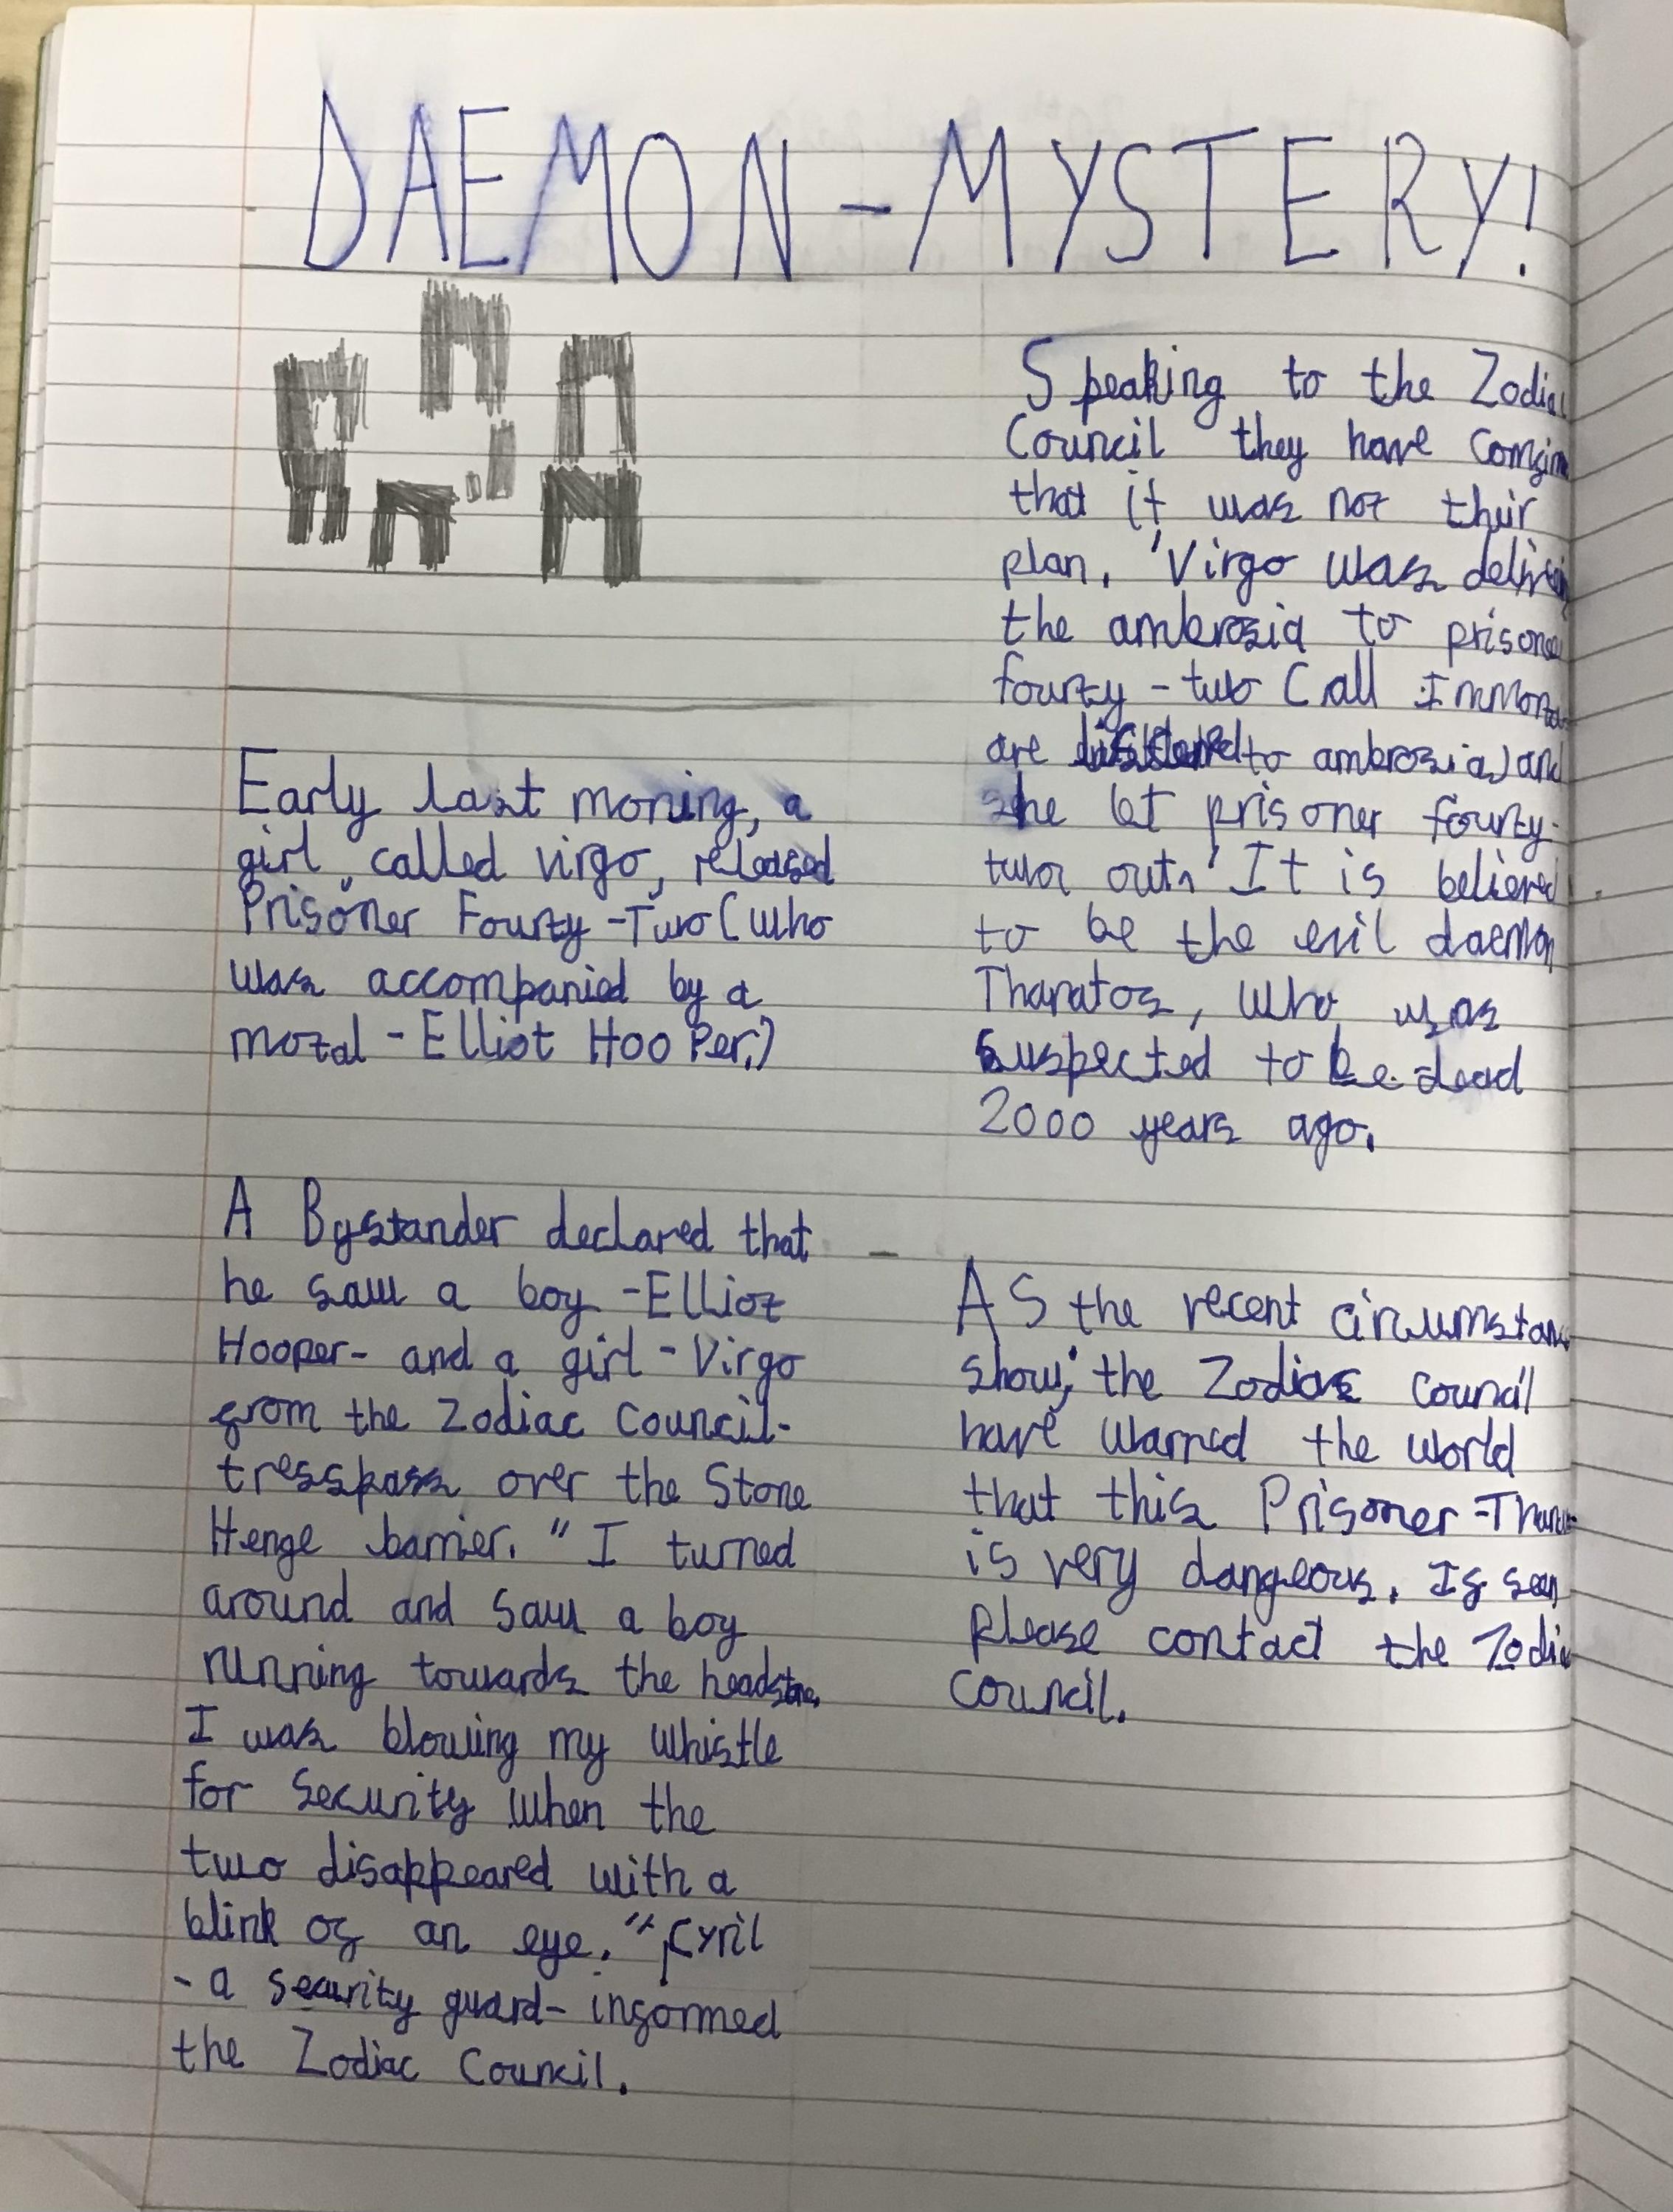 DAEMON-MYSTERY!
Early last moring, a
girl, called virgo, released
Prisoner Fourty-Two (who
was accompanied by a
motal - Elliot Hooper.)
A Bystander declared that
he saw a boy -Elliot
Hooper- and a girl - Virgo
from the Zodiac Council-
tresspass over the Stone
Henge barrier. "I turned
around and saw a boy
running towards the headstone,
I was blowing my whistle
for security when the
two disappeared with a
blink of an eye." Cyril
- a security guard- informed
the Zodiac Council.
Speaking to the Zodiac
Council they have
that it was not their
plan. 'Virgo was
the ambrosia to prisoner
fourty-two (all
are to ambrosia) and
she let prisoner fourty-
two out.' It is believed
to be the evil daemon
Thanatos, who was
suspected to be dead
2000 years ago.
As the recent
show, the Zodiac council
have warned the world
that this Prisoner -
is very dangeous. If seen
please contact the Zodiac
council.